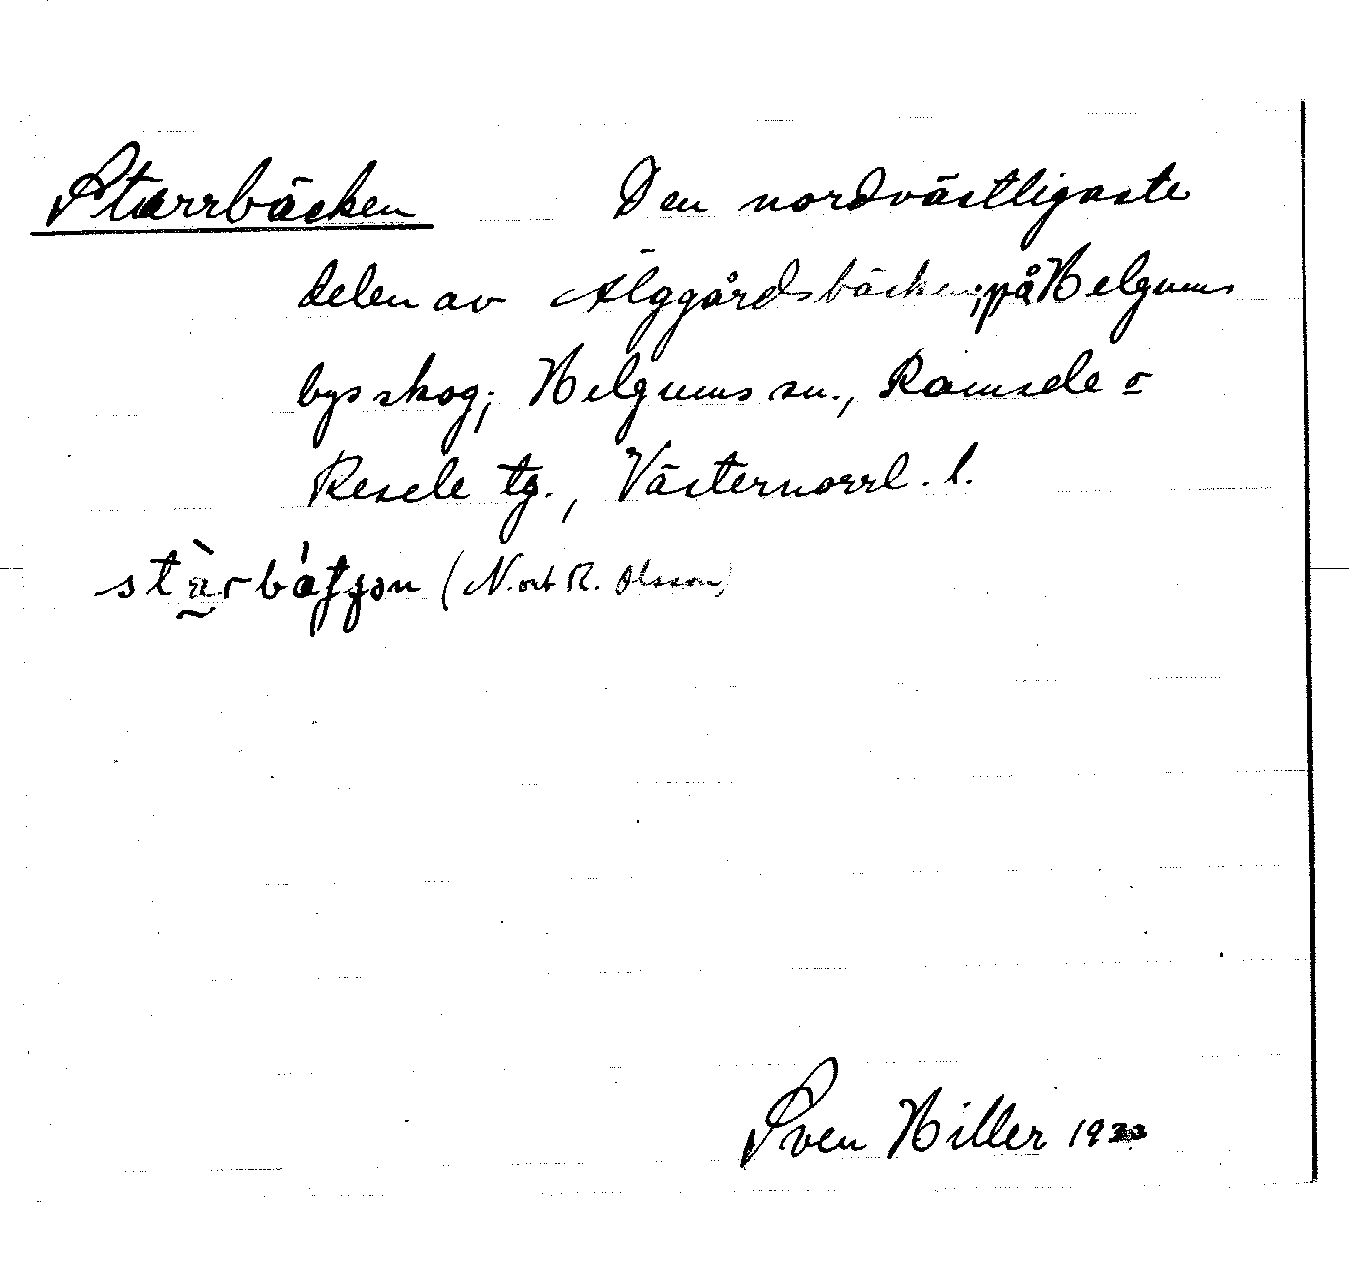 Starrbäcken Den nordvästligaste
delen av Älggårdsbäcken; på Helgums
bys skog; Helgums sn., Ramsele o
Resele tg., Västernorrl. l.
(N. och R. Olsson)
Sven Hiller